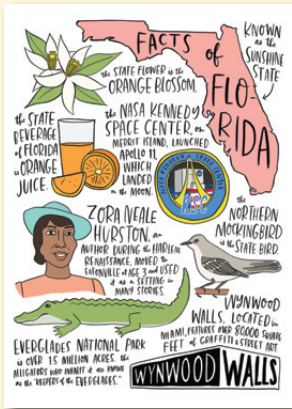 FACTS of
FLO-
RIDA
KNOWN
as the
SUNSHINE
STATE
the STATE FLOWER is the
ORANGE BLOSSOM.
the STATE
BEVERAGE
of FLORIDA
is ORANGE
JUICE.
the NASA KENNEDY
SPACE CENTER, on
MERRIT ISLAND, LAUNCHED
APOLLO 11,
WHICH
LANDED
on the MOON.
KENNEDY SPACE CENTER
KSC
ZORA NEALE
HURSTON, an
AUTHOR DURING the HARLEM
RENAISSANCE, MOVED to
EATONVILLE at AGE 3 and USED
it as a SETTING in
MANY STORIES.
the
NORTHERN
MOCKINGBIRD
is the STATE BIRD.
WYNWOOD
WALLS, LOCATED in
MIAMI, FEATURES OVER 80,000 SQUARE
FEET of GRAFFITI & STREET ART.
EVERGLADES NATIONAL PARK
is OVER 1.5 MILLION ACRES. the
ALLIGATORS WHO INHABIT it are KNOWN
as the "KEEPERS of the EVERGLADES."
WYNWOOD WALLS